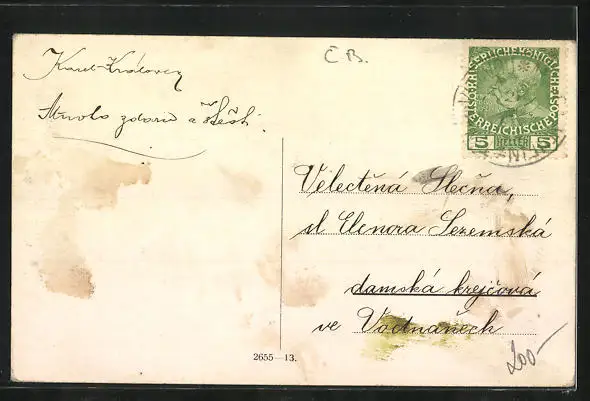 Karel Královcz
Mnoho zdaru a štěstí.
Č B.
KAISERLICHE KÖNIGLICHE
ÖSTERREICHISCHE POST
5 HELLER 5
Velectěná Slečna,
sl Elenora Sezemská
damská krejčová
ve Vodňanech
2655—13.
200—